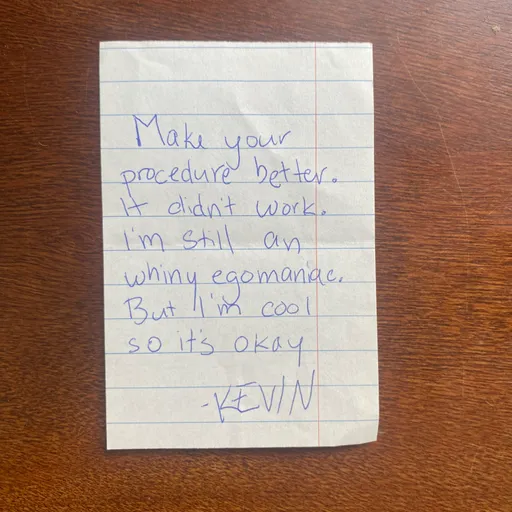 Make your
procedure better.
It didn't work.
I'm still an
whiny egomaniac.
But I'm cool
so it's okay
-KEVIN